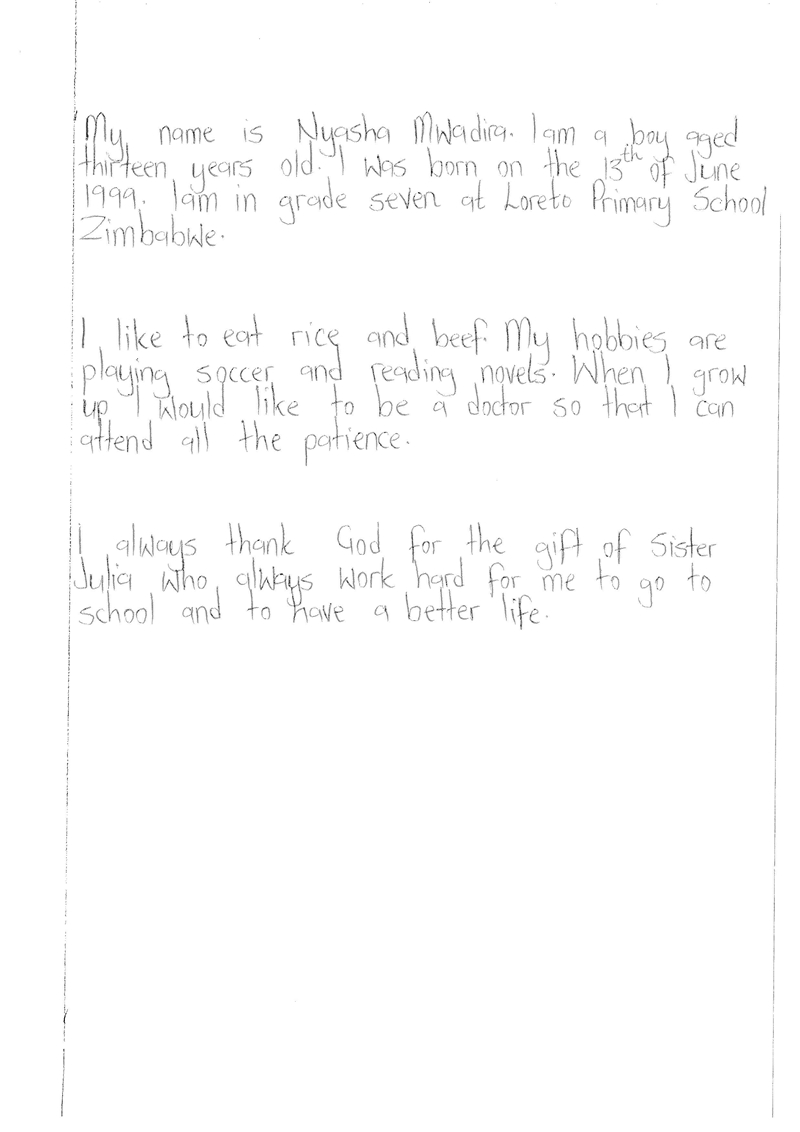 My name is Nyasha Mwadira. I am a boy aged
thirteen years old. I was born on the 13th of June
1999. I am in grade seven at Loreto Primary School
Zimbabwe.
I like to eat rice and beef. My hobbies are
playing soccer and reading novels. When I grow
up I would like to be a doctor so that I can
attend all the patience.
I always thank God for the gift of Sister
Julia who always work hard for me to go to
school and to have a better life.